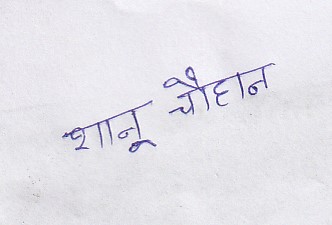 शानू चौहान